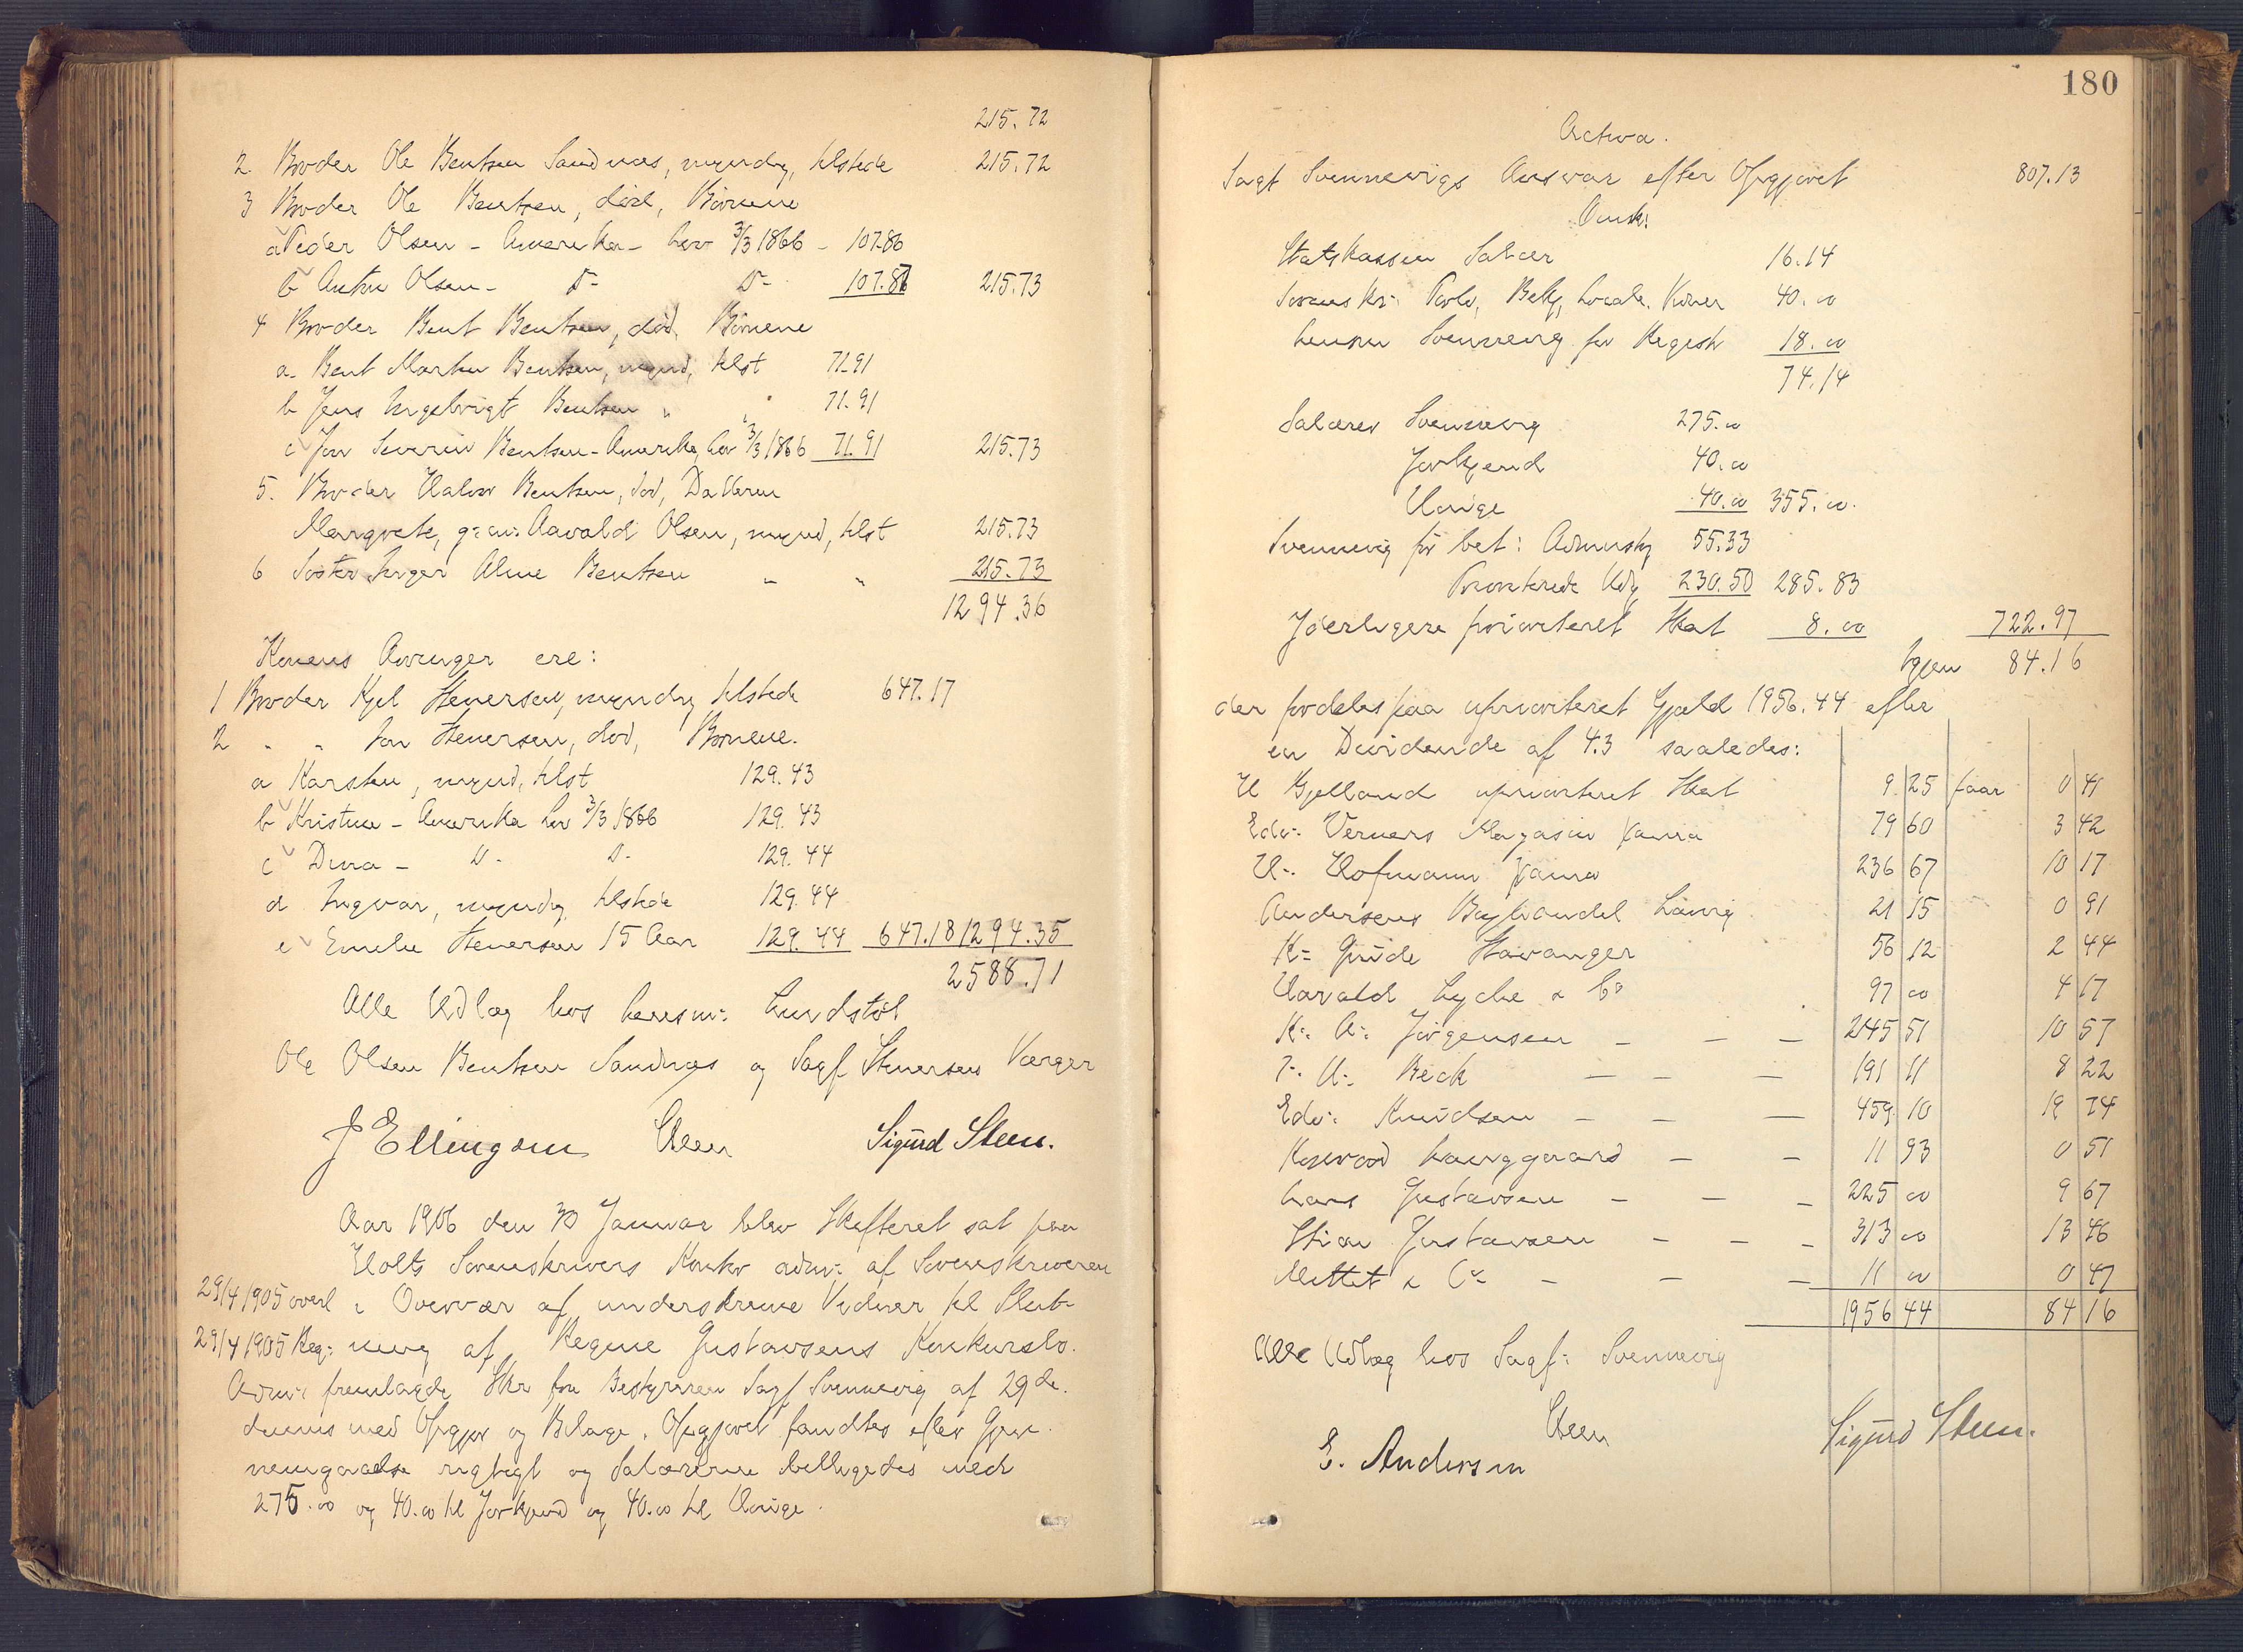 215.72
2 Broder Ole Bentsen Sandnæs, myndig, tilstede 215.72
3 Broder Ole Bentsen, død, Børnene
a Peder Olsen - Amerika - Lov 3/3 1866 - 107.86
b Anton Olsen - D- D- 107.87 215.73
4 Broder Bent Bentsen, død, Børnene
a- Bent Martin Bentsen, mynd, tilst 71.91
b Jens Ingebrigt Bentsen " " 71.91
c Jon Severin Bentsen - Amerika, Lov 3/3 1866 71.91 215.73
5. Broder Halvor Bentsen, død, Datteren
Margrete, g: m: Aavald Olsen, mynd, tilst 215.73
6 Søster Inger Aline Bentsen " " 215.73
1294.36
Konens Arvinger ere:
1 Broder Kjel Stenersen, myndig tilstede 647.17
2 " " Jon Stenersen, død, Børnene.
a Karsten, mynd, tilst 129.43
b Kristine - Amerika Lov 3/3 1866 129.43
c Dina - D- D- 129.44
d Ingvar, myndig tilstede 129.44
e Emilie Stenersen 15 Aar 129.44 647.18 1294.35
2588.71
Alle Udlæg hos Lensm: Lundstøl
Ole Olsen Bentsen Sandnæs og Sagf Stenersen Værger
J Ellingsen Steen Sigurd Steen.
Aar 1906 den 30 Januar blev Skifteret sat paa
Holts Sorenskrivers Kontor adm: af Sorenskriveren
29/4 1905 overl i Overvær af underskrevne Vidner til Slut-
29/4 1905 Reg: ning af Regine Gustavsens Konkursbo.
Adm: fremlagde Skr fra Bestyreren Sagf Svennevig af 29de
dennes med Opgjør og Bilage. Opgjøret fandtes efter Gjen-
nemgaaelse rigtigt og Salærerne billigedes med
275.00 og 40.00 til Jorkjend og 40.00 til Hauge.
180
Activa.
Sagf Svennevigs Ansvar efter Opgjøret 807.13
Omk:
Statskassen Salær 16.14
Sorenskr: Porto, Bekj, Locale, Vidner 40.00
Lensm Svennevig for Registr 18.00
74.14
Salærer Svennevig 275.00
Jorkjend 40.00
Hauge 40.00 355.00.
Svennevig for bet: Administr 55.33
Prioriterede Udg 230.50 285.83
Yderligere prioriteret Skat 8.00 722.97
Igjen 84.16
der fordeles paa uprioriteret Gjæld 1956.44 efter
en Dividende af 4.3 saaledes:
H Gjelland uprioriteret Skat 9 25 faar 0 41
Edv: Verners Magasin Xania 79 60 3 42
H: Hofmann Xania 236 67 10 17
Andersens Boghandel Larvig 21 15 0 91
K= Grude Stavanger 56 12 2 44
Harald Lyche & Co 97 00 4 17
K: A: Jørgensen - - - 245 51 10 57
T: H: Beck - - - 191 11 8 22
Edv: Knudsen - - - 459 10 19 74
Langgaard - - 11 93 0 51
Lars Gustavsen - - - 225 00 9 67
Stian Gustavsen - - - 313 00 13 46
Mittet & Co - - - 11 00 0 47
1956 44 84 16
Alle Udlæg hos Sagf: Svennevig
Steen Sigurd Steen.
E. Andersen